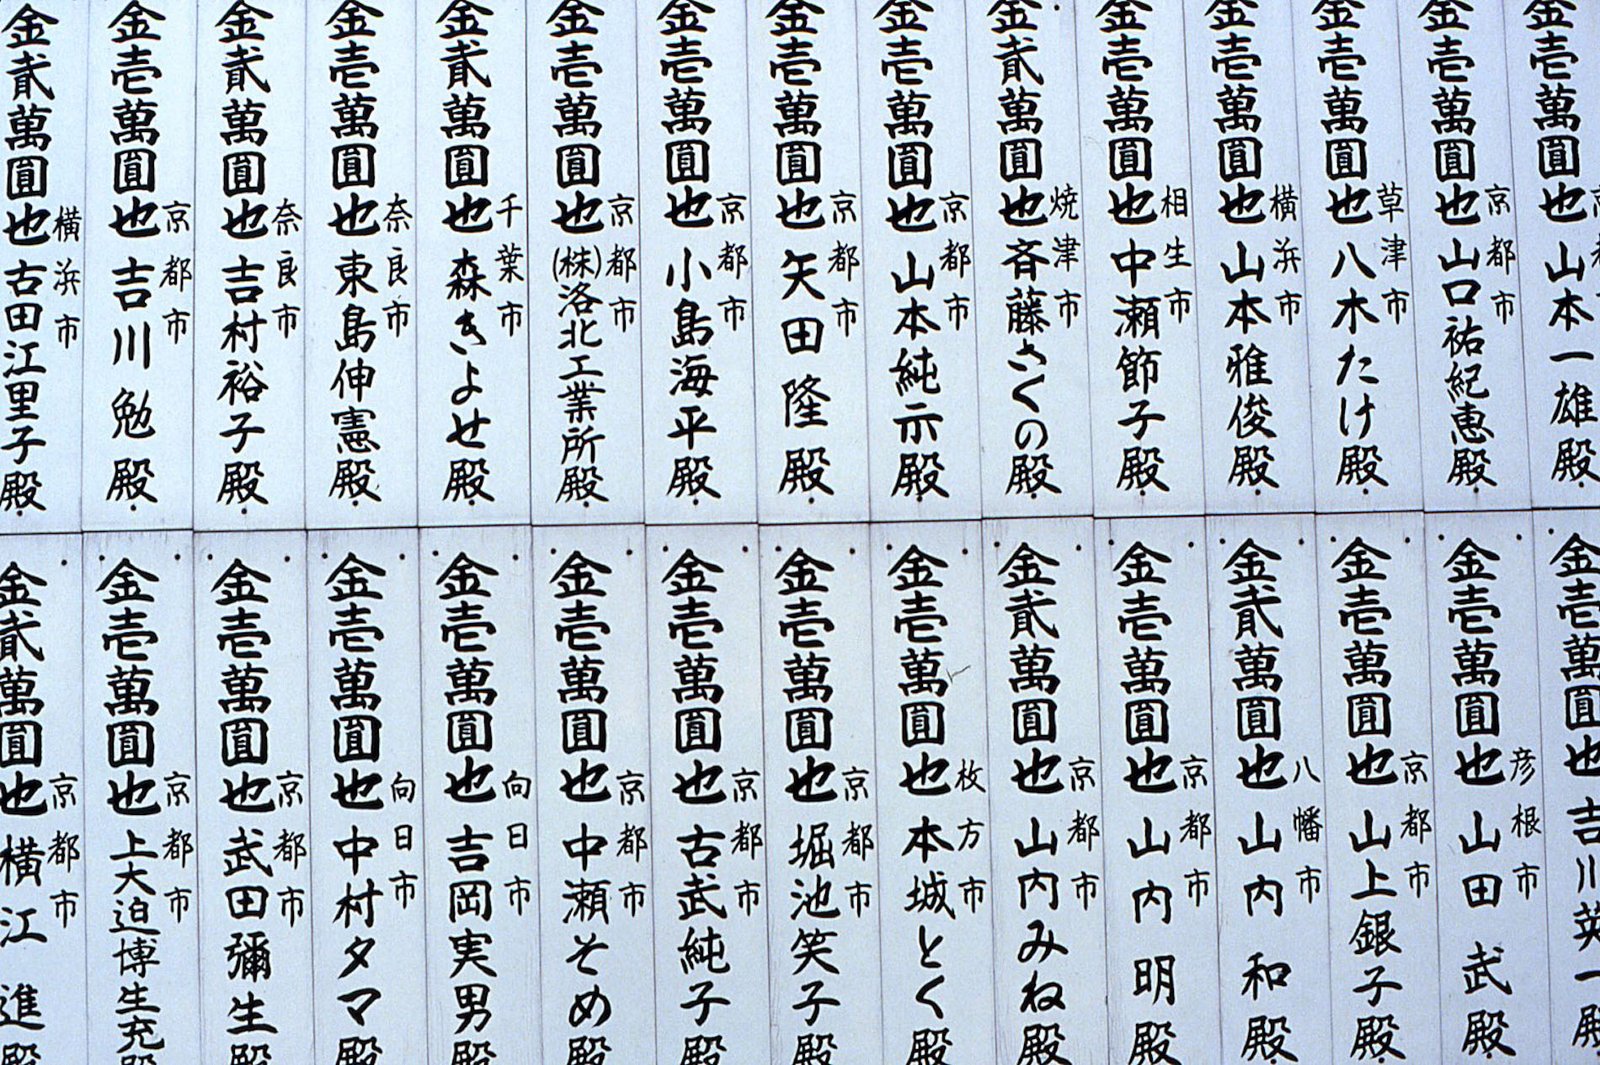 金壱萬圓也 山本一雄殿
金壱萬圓也 京都市 山口祐紀恵殿
金壱萬圓也 草津市 八木たけ殿
金壱萬圓也 横浜市 山本雅俊殿
金壱萬圓也 相生市 中瀬節子殿
金貮萬圓也 焼津市 斉藤さくの殿
金壱萬圓也 京都市 山本純示殿
金壱萬圓也 京都市 矢田隆殿
金壱萬圓也 京都市 小島海平殿
金壱萬圓也 京都市 (株)洛北工業所殿
金貮萬圓也 千葉市 森きよせ殿
金壱萬圓也 奈良市 東島伸憲殿
金貮萬圓也 奈良市 吉村裕子殿
金壱萬圓也 京都市 吉川勉殿
金貮萬圓也 横浜市 古田江里子殿
金壱萬圓也 吉川英一殿
金壱萬圓也 彦根市 山田武殿
金壱萬圓也 京都市 山上銀子殿
金貮萬圓也 八幡市 山内和殿
金壱萬圓也 京都市 山内明殿
金貮萬圓也 京都市 山内みね殿
金壱萬圓也 枚方市 本城とく殿
金壱萬圓也 京都市 堀池笑子殿
金壱萬圓也 京都市 古武純子殿
金壱萬圓也 京都市 中瀬そめ殿
金壱萬圓也 向日市 吉岡実男殿
金壱萬圓也 向日市 中村タマ殿
金壱萬圓也 京都市 武田彌生殿
金壱萬圓也 京都市 上大迫博生充殿
金貮萬圓也 京都市 横江進殿